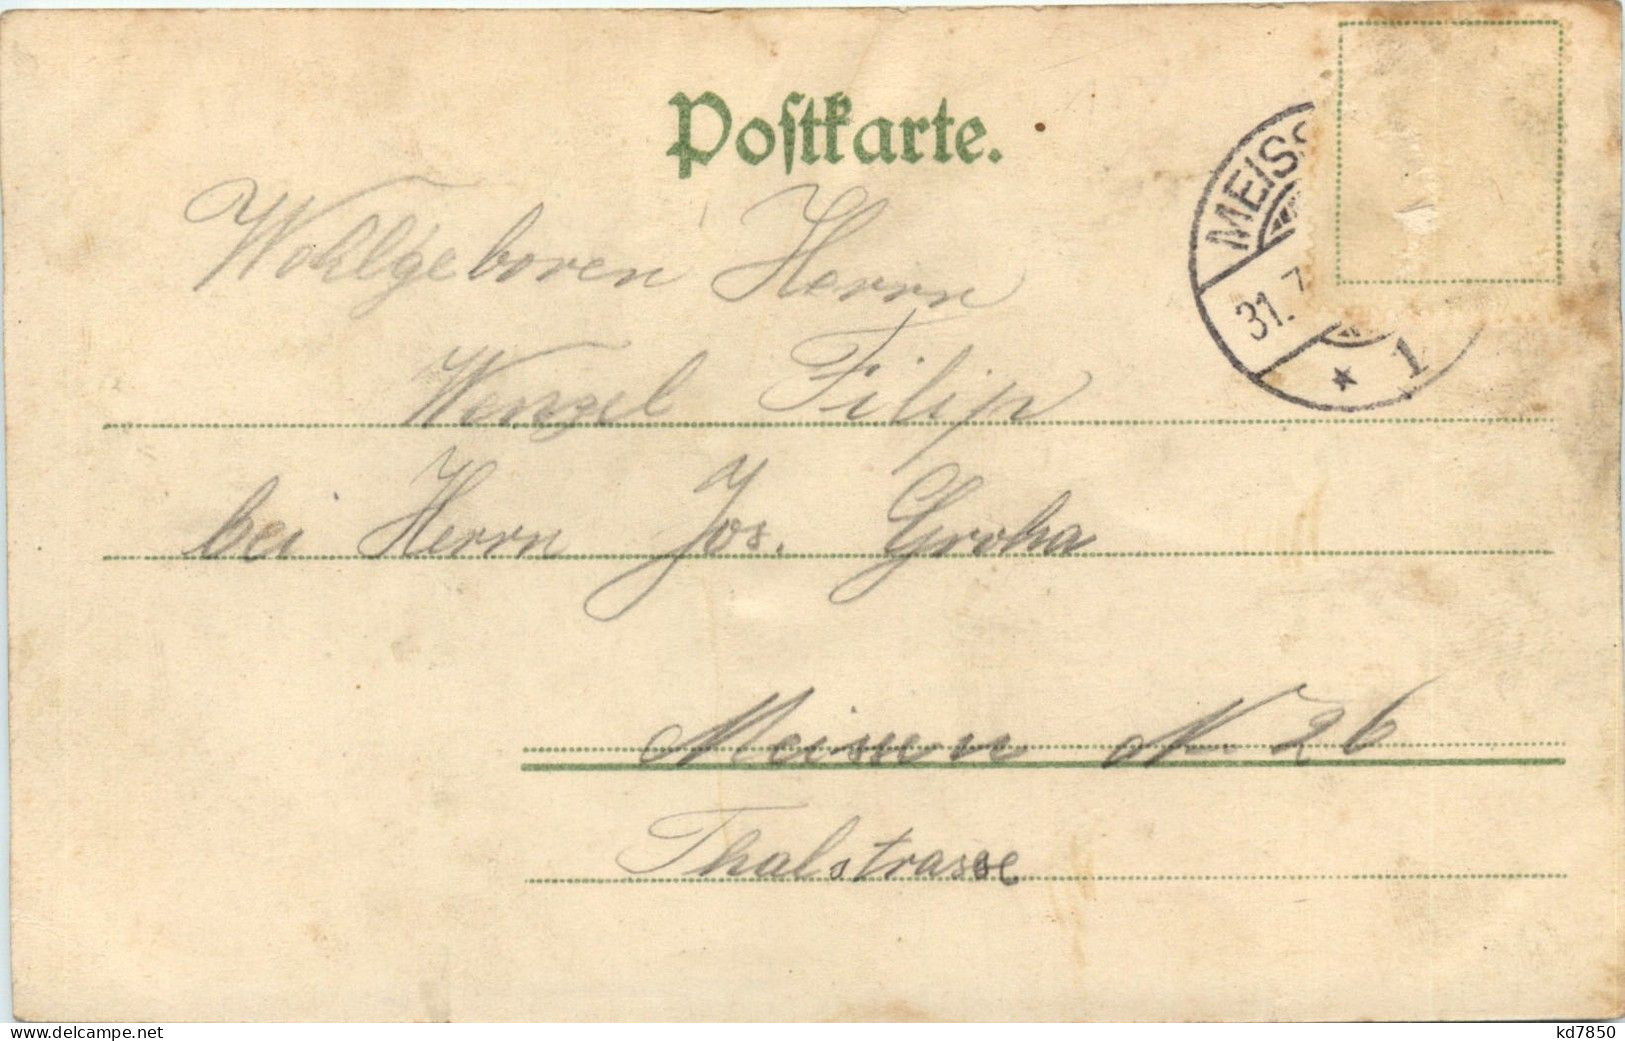 Postkarte.
MEISS
31. 7
* 1
Wohlgeboren Herrn
Wenzel Filip
bei Herrn Jos. Groha
Meissen N. 26
Thalstrasse
www.delcampe.net
kd7850